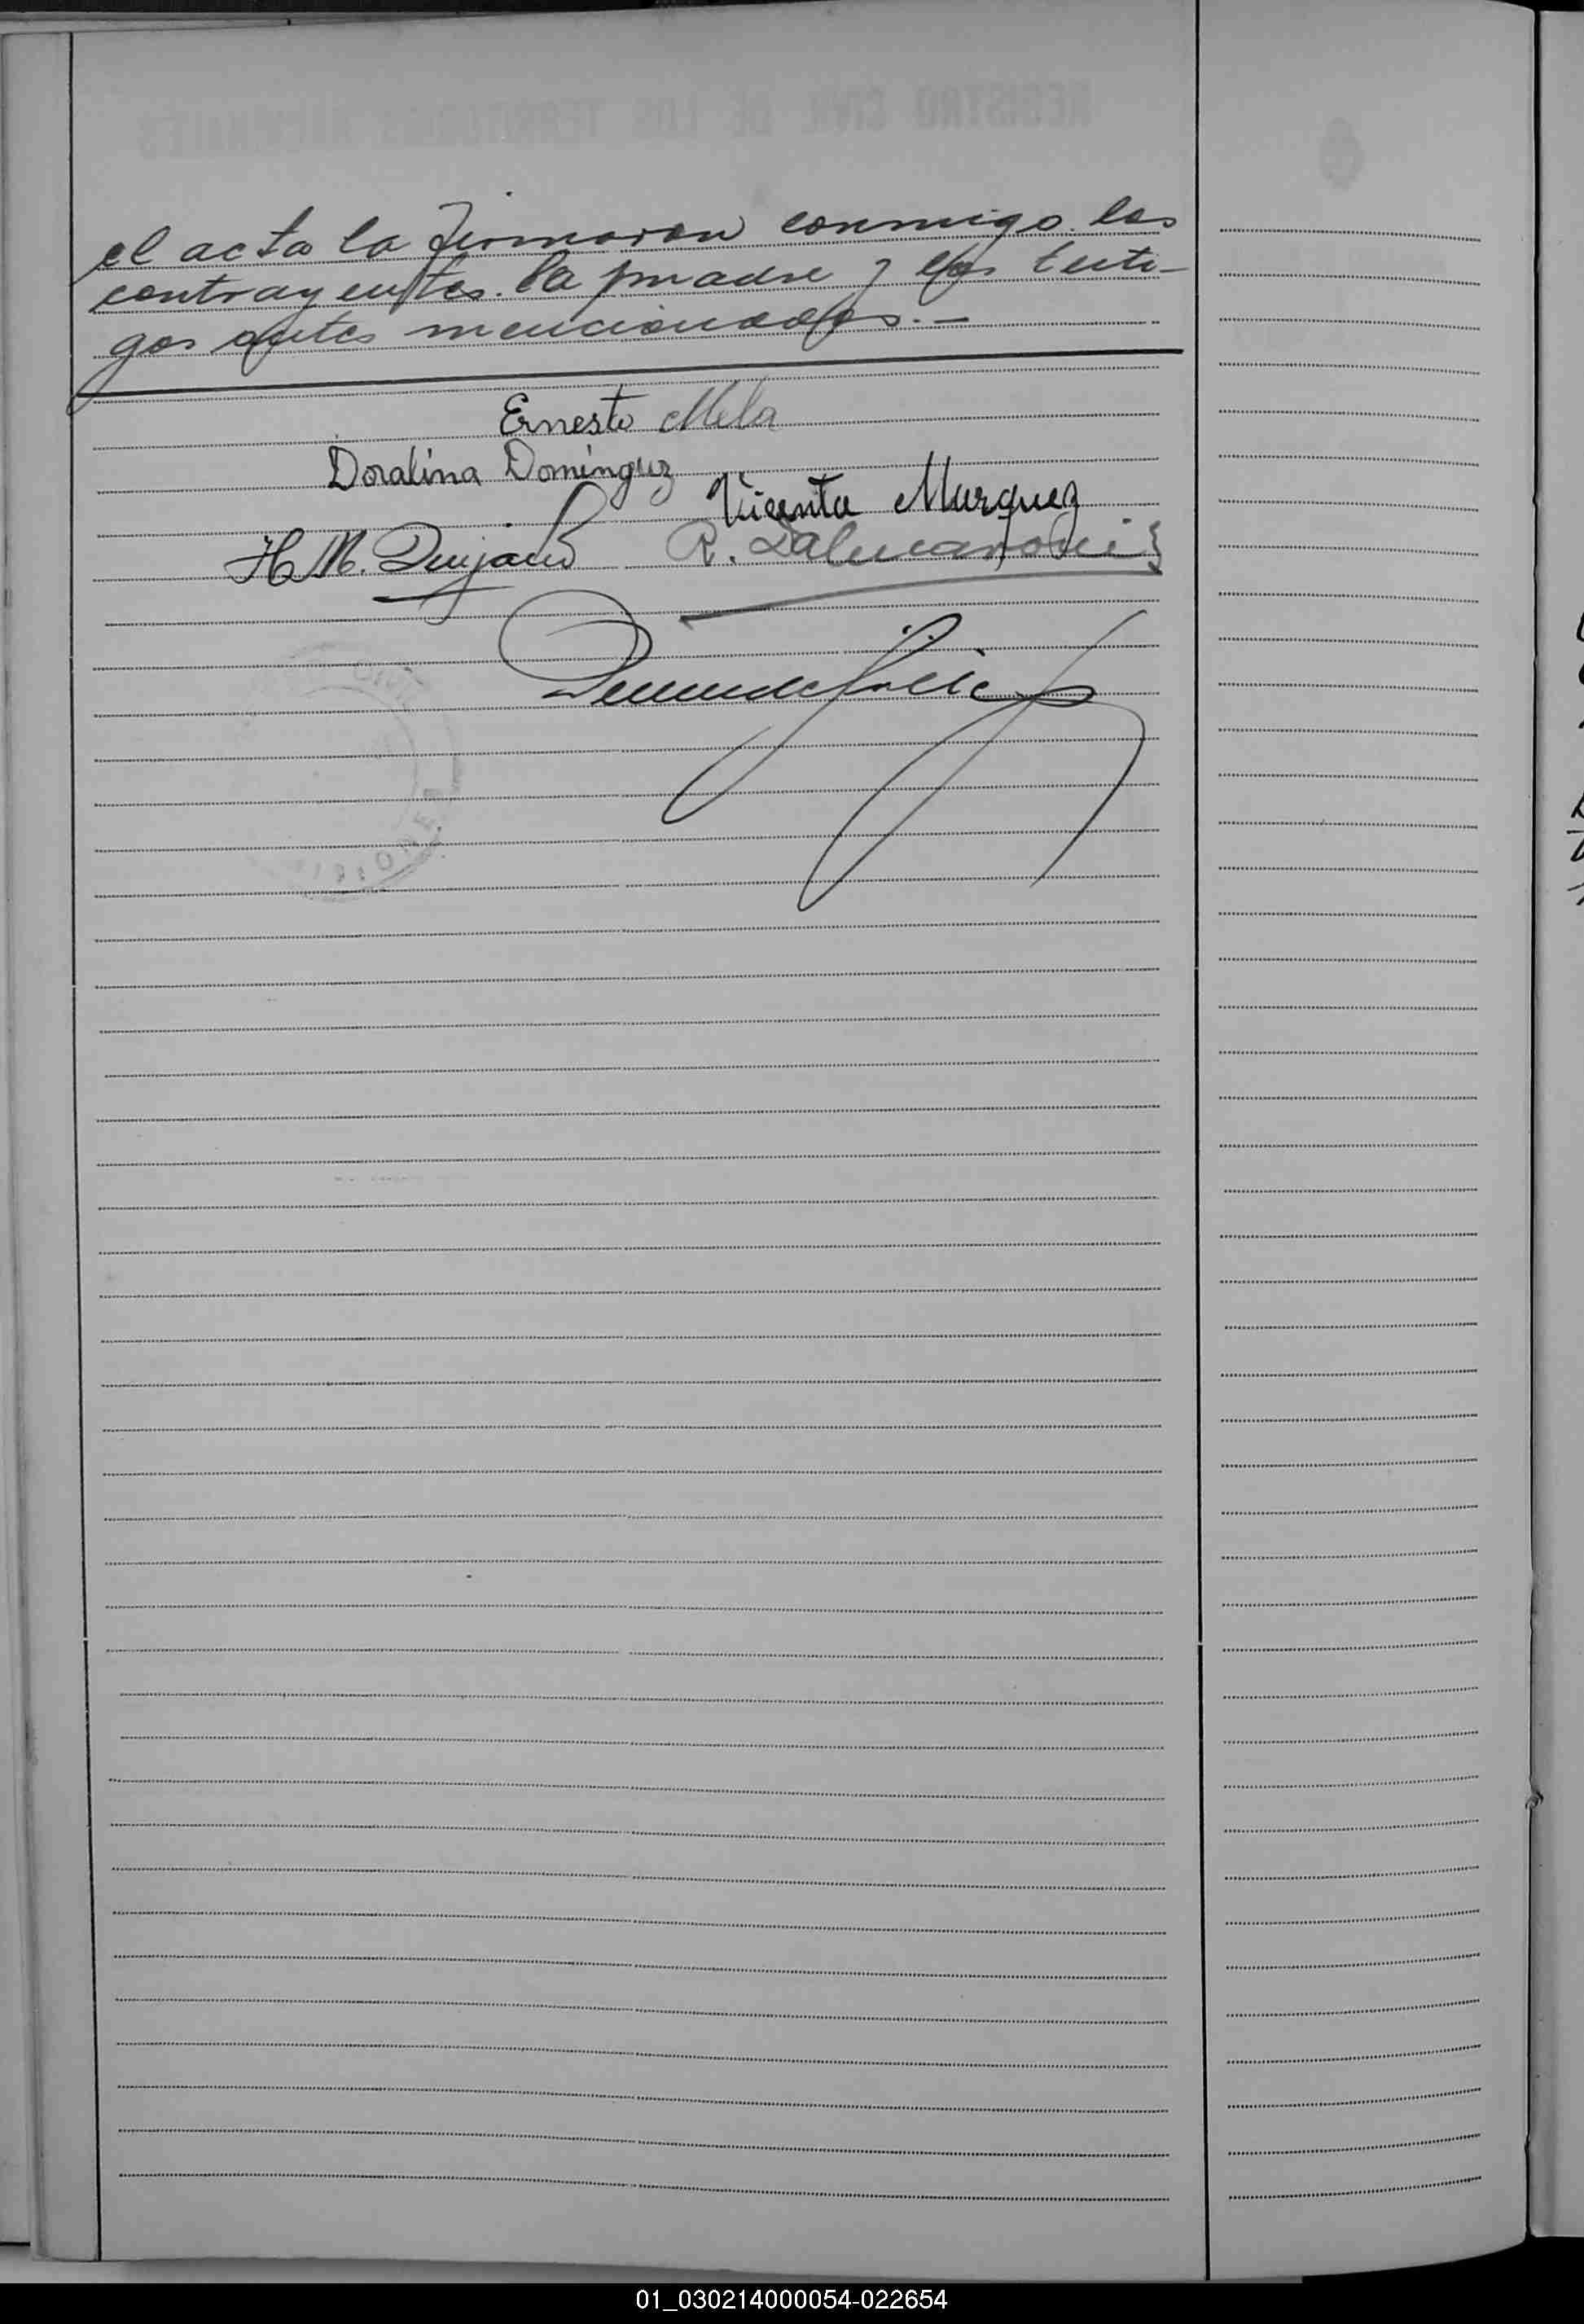 el acta la firmaron conmigo los
contrayentes. la madre y los testi-
gos antes mencionados.-
Ernesto Mela
Doralina Domínguez
Vicenta Marquez
H M.
R.
01_030214000054-022654